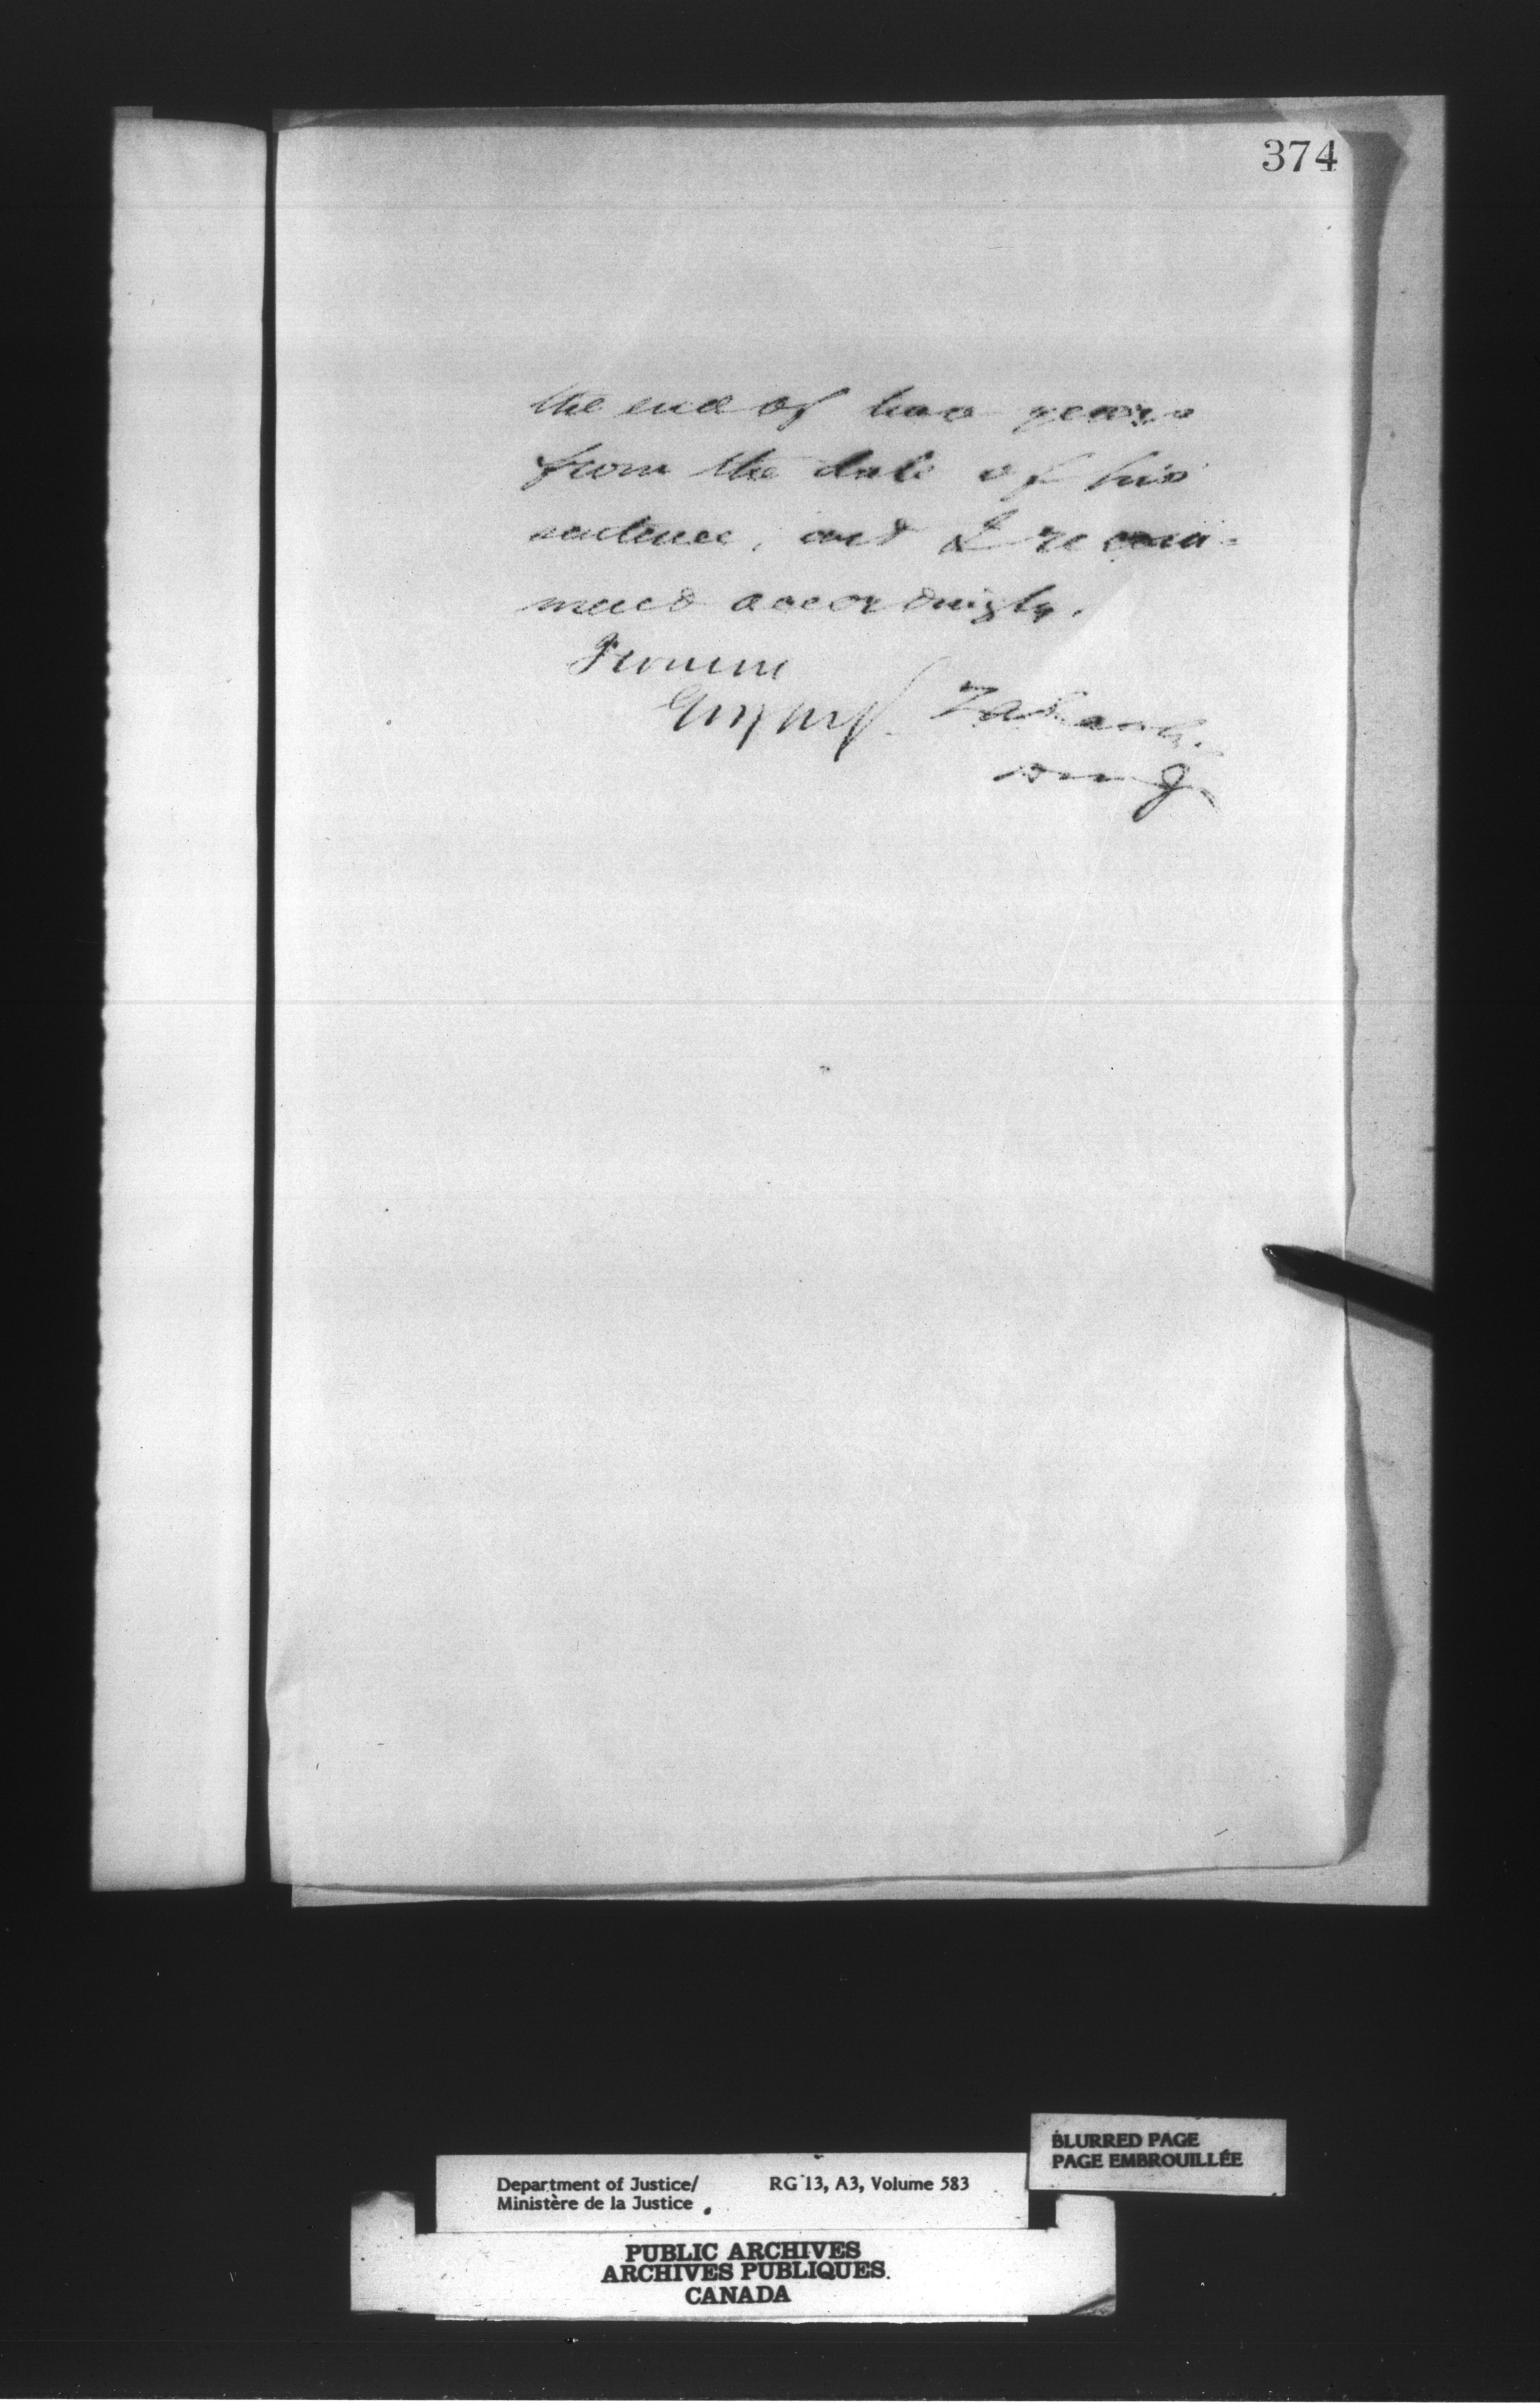 374
the end of two years
from the date of his
sentence, and I recom-
mend accordingly.
I concur
Z A Lash
D M J
BLURRED PAGE
PAGE EMBROUILLÉE
Department of Justice/ RG 13, A3, Volume 583
Ministère de la Justice
PUBLIC ARCHIVES
ARCHIVES PUBLIQUES
CANADA